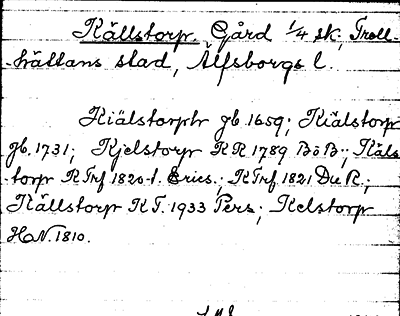 Källstorp Gård 1/4 sk, Troll-
hättans stad, Älfsborgs l.
Kiälstorph gb. 1659; Kiälstorp
gb. 1731; Kjelstorp KR 1789 BöB; Käls-
torp K Trf 1820-t. Erics.; K Trf 1821 Du R.;
Källstorp K T. 1933 Pers; Kelstorp
HN. 1810.